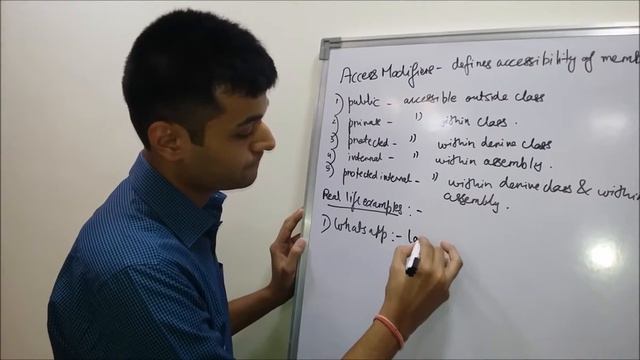 Access Modifiers - defines accessibility of mem
1) public - accessible outside class
2) private - " within class.
3) protected - " within derive class
4) internal - " within assembly.
5) protected internal - " within derive class & within
assembly.
Real life examples :-
1) Whatsapp :- la